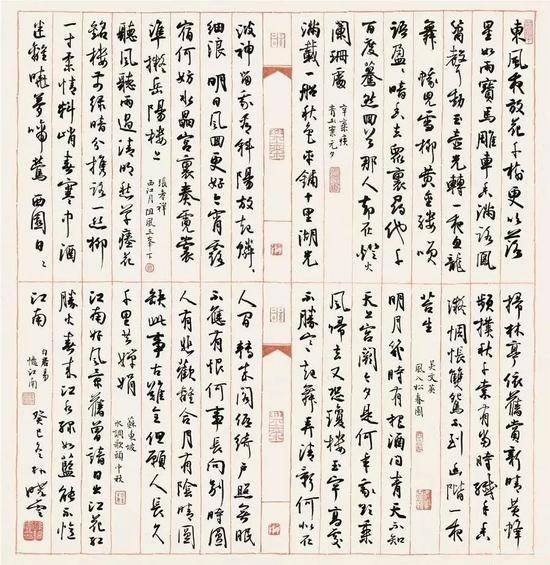 東風夜放花千樹更吹落
星如雨寶馬雕車香滿路鳳
簫聲動玉壺光轉一夜魚龍
舞 蛾兒雪柳黃金縷笑
語盈盈暗香去眾裏尋他千
百度驀然回首那人卻在燈火
闌珊處
辛棄疾
青玉案元夕
滿載一船秋色平鋪十里湖光
波神留我看斜陽放起鱗鱗
細浪 明日風回更好今宵露
宿何妨水晶宮裏奏霓裳
準擬岳陽樓上
張孝祥
西江月阻風三峯下
聽風聽雨過清明愁草瘞花
銘樓前綠暗分攜路一絲柳
一寸柔情料峭春寒中酒
迷離曉夢啼鶯 西園日日
掃林亭依舊賞新晴黃蜂
頻撲秋千索有當時纖手香
凝惆悵雙鴛不到幽階一夜
苔生
吳文英
風入松春園
明月幾時有把酒問青天不知
天上宮闕今夕是何年我欲乘
風歸去又恐瓊樓玉宇高處
不勝寒起舞弄清影何似在
人間 轉朱閣低綺戶照無眠
不應有恨何事長向別時圓
人有悲歡離合月有陰晴圓
缺此事古難全但願人長久
千里共嬋娟
蘇東坡
水調歌頭中秋
江南好風景舊曾諳日出江花紅
勝火春來江水綠如藍能不憶
江南
白居易
憶江南
癸巳冬 曉雲